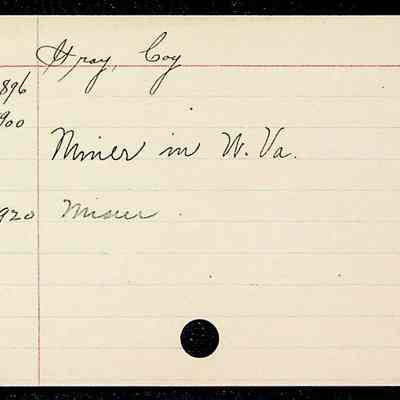 Gray, Coy
896
900
Miner in W. Va.
920 Miner.